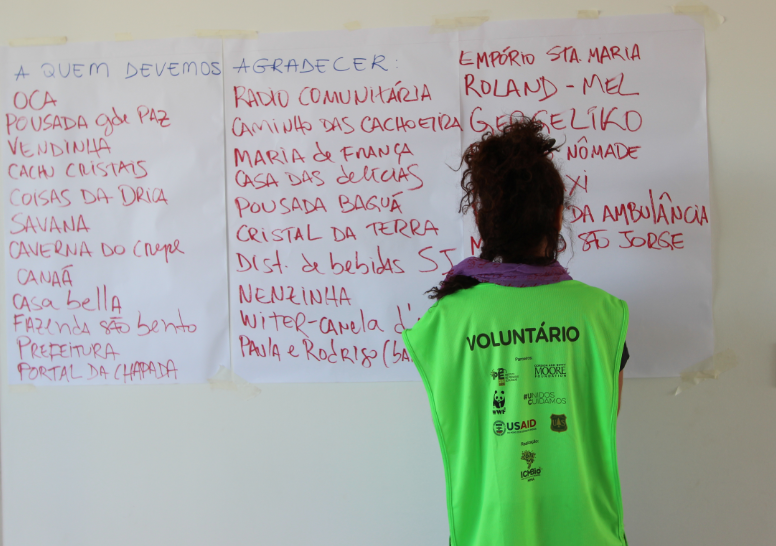 A QUEM DEVEMOS AGRADECER:
OCA
POUSADA gde PAZ
VENDINHA
CACHU CRISTAIS
COISAS DA DRICA
SAVANA
CAVERNA DO crepe
CANAÃ
CASA bella
FAZENDA SÃO bento
PREFEITURA
PORTAL DA CHAPADA
RADIO COMUNITÁRIA
CAMINHO DAS CACHOEIRA
MARIA de FRANÇA
CASA DAS delícias
POUSADA BAGUÁ
CRISTAL DA TERRA
DIST. de bebidas SJ
NENZINHA
WITER-CANELA d'
PAULA e RODRIGO (ba
EMPÓRIO STA. MARIA
ROLAND - MEL
GERGELIKO
NÔMADE
XI
DA AMBULÂNCIA
SÃO JORGE
VOLUNTÁRIO
MOORE
WWF
#UNIDOS CUIDAMOS
USAID
ICMBio